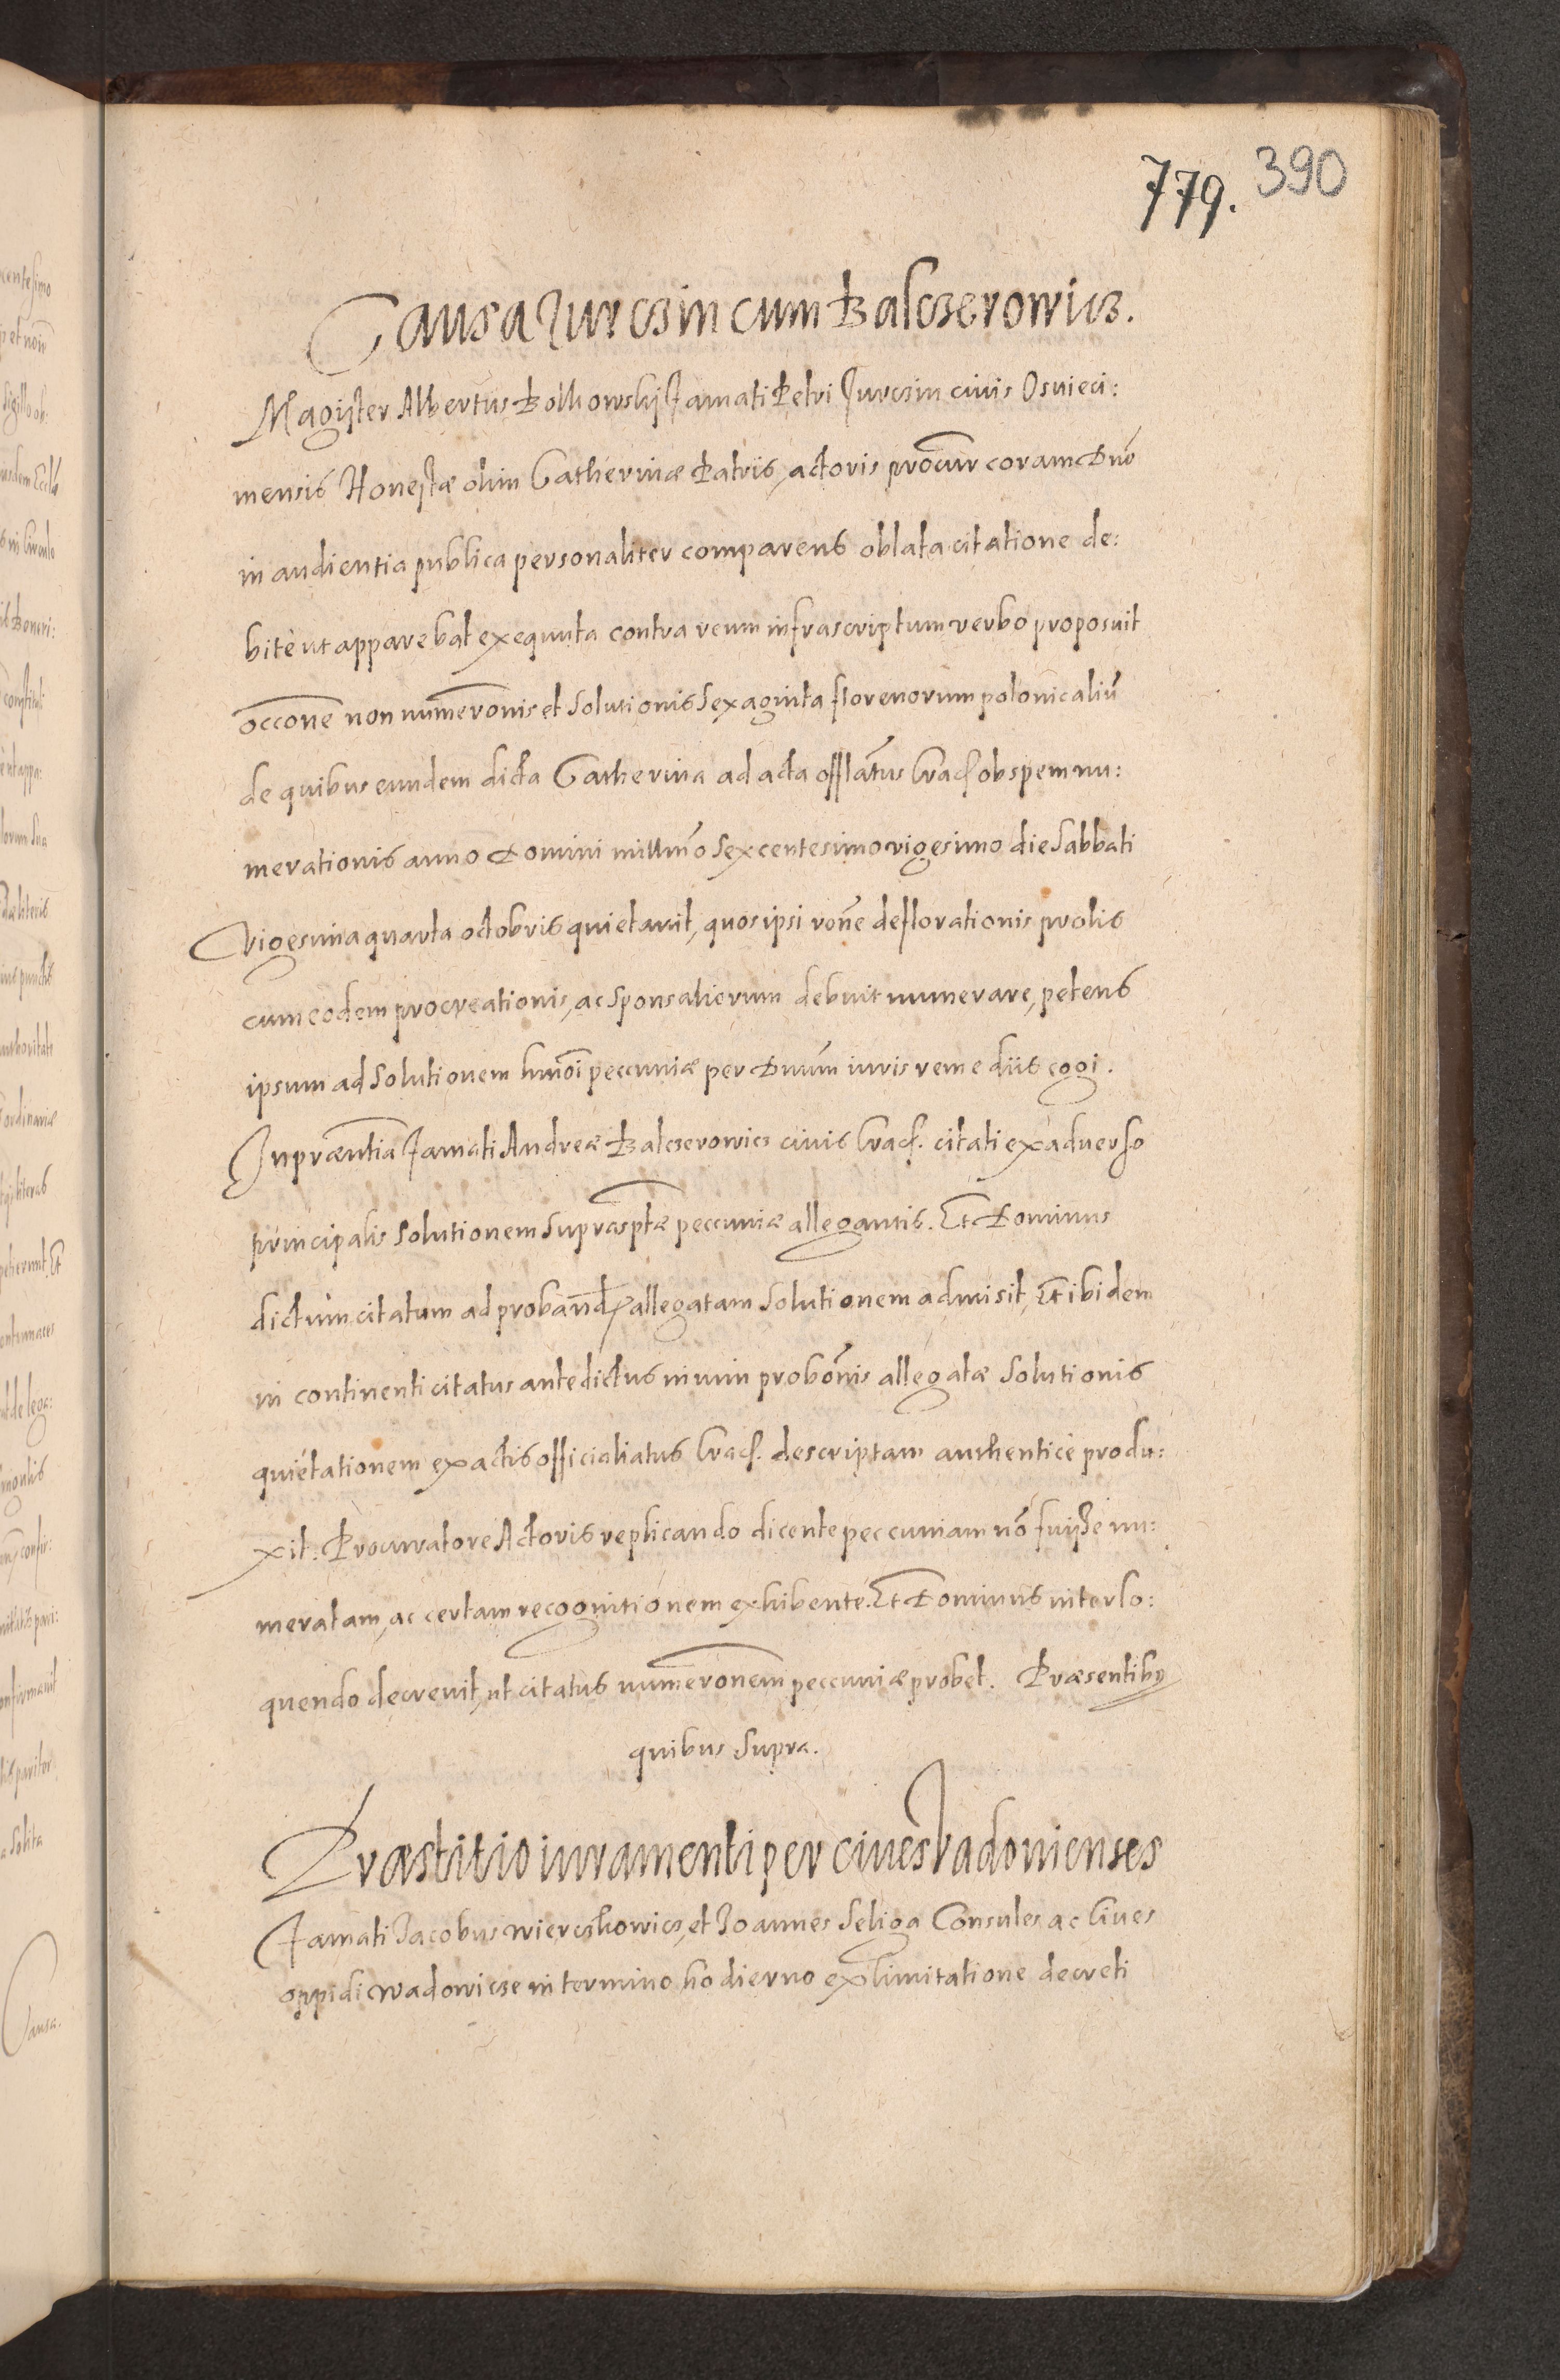 779. 390
Causa Jurczin cum Balczerowicz.
Magister Albertus Bolkowskÿ Famati Petri Jurczin civis Osvieci:
mensis Honestæ olim Catherinæ Patris, actoris procur coram Dnō
in audientia publica personaliter comparens oblata citatione de:
bitè ut apparebat exequuta contra reum infrascriptum verbo proposuit
occone non numeronis et solutionis sexaginta florenorum polonicaliū
de quibus eundem dicta Catherina ad acta offlatus Crac. ob spem nu:
merationis anno Domini millmo sexcentesimo vigesimo die Sabbati
vigesima quarta octobris quietavit, quos ipsi rone deflorationis prolis
cum eodem procreationis, ac sponsaliorum debuit numerare, petens
ipsum ad solutionem hmoi peccuniæ per Dnum iuris remediis cogi.
In præntia Famati Andreæ Balczerowicz civis Crac. citati ex adverso
principalis solutionem suprasptæ peccuniæ allegantis. Et Dominus
dictum citatum ad proband allegatam solutionem admisit, Et ibidem
in continenti citatus antedictus in vim probonis allegatæ solutionis
quietationem ex actis officialiatus Crac. descriptam authenticè produ:
xit. Procuratore Actoris replicando dicente peccuniam nō fuisse nu:
meratam, ac certam recognitionem exhibente. Et Dominus interlo:
quendo decrevit, ut citatus numeronem peccuniæ probet. Præsentibus
quibus supra.
Præstitio iuramenti per cives Vadovienses
Famati Jacobus Wierczkowicz, et Joannes Seliga Consules ac Cives
oppidi Wadowicze in termino hodierno ex limitatione decreti